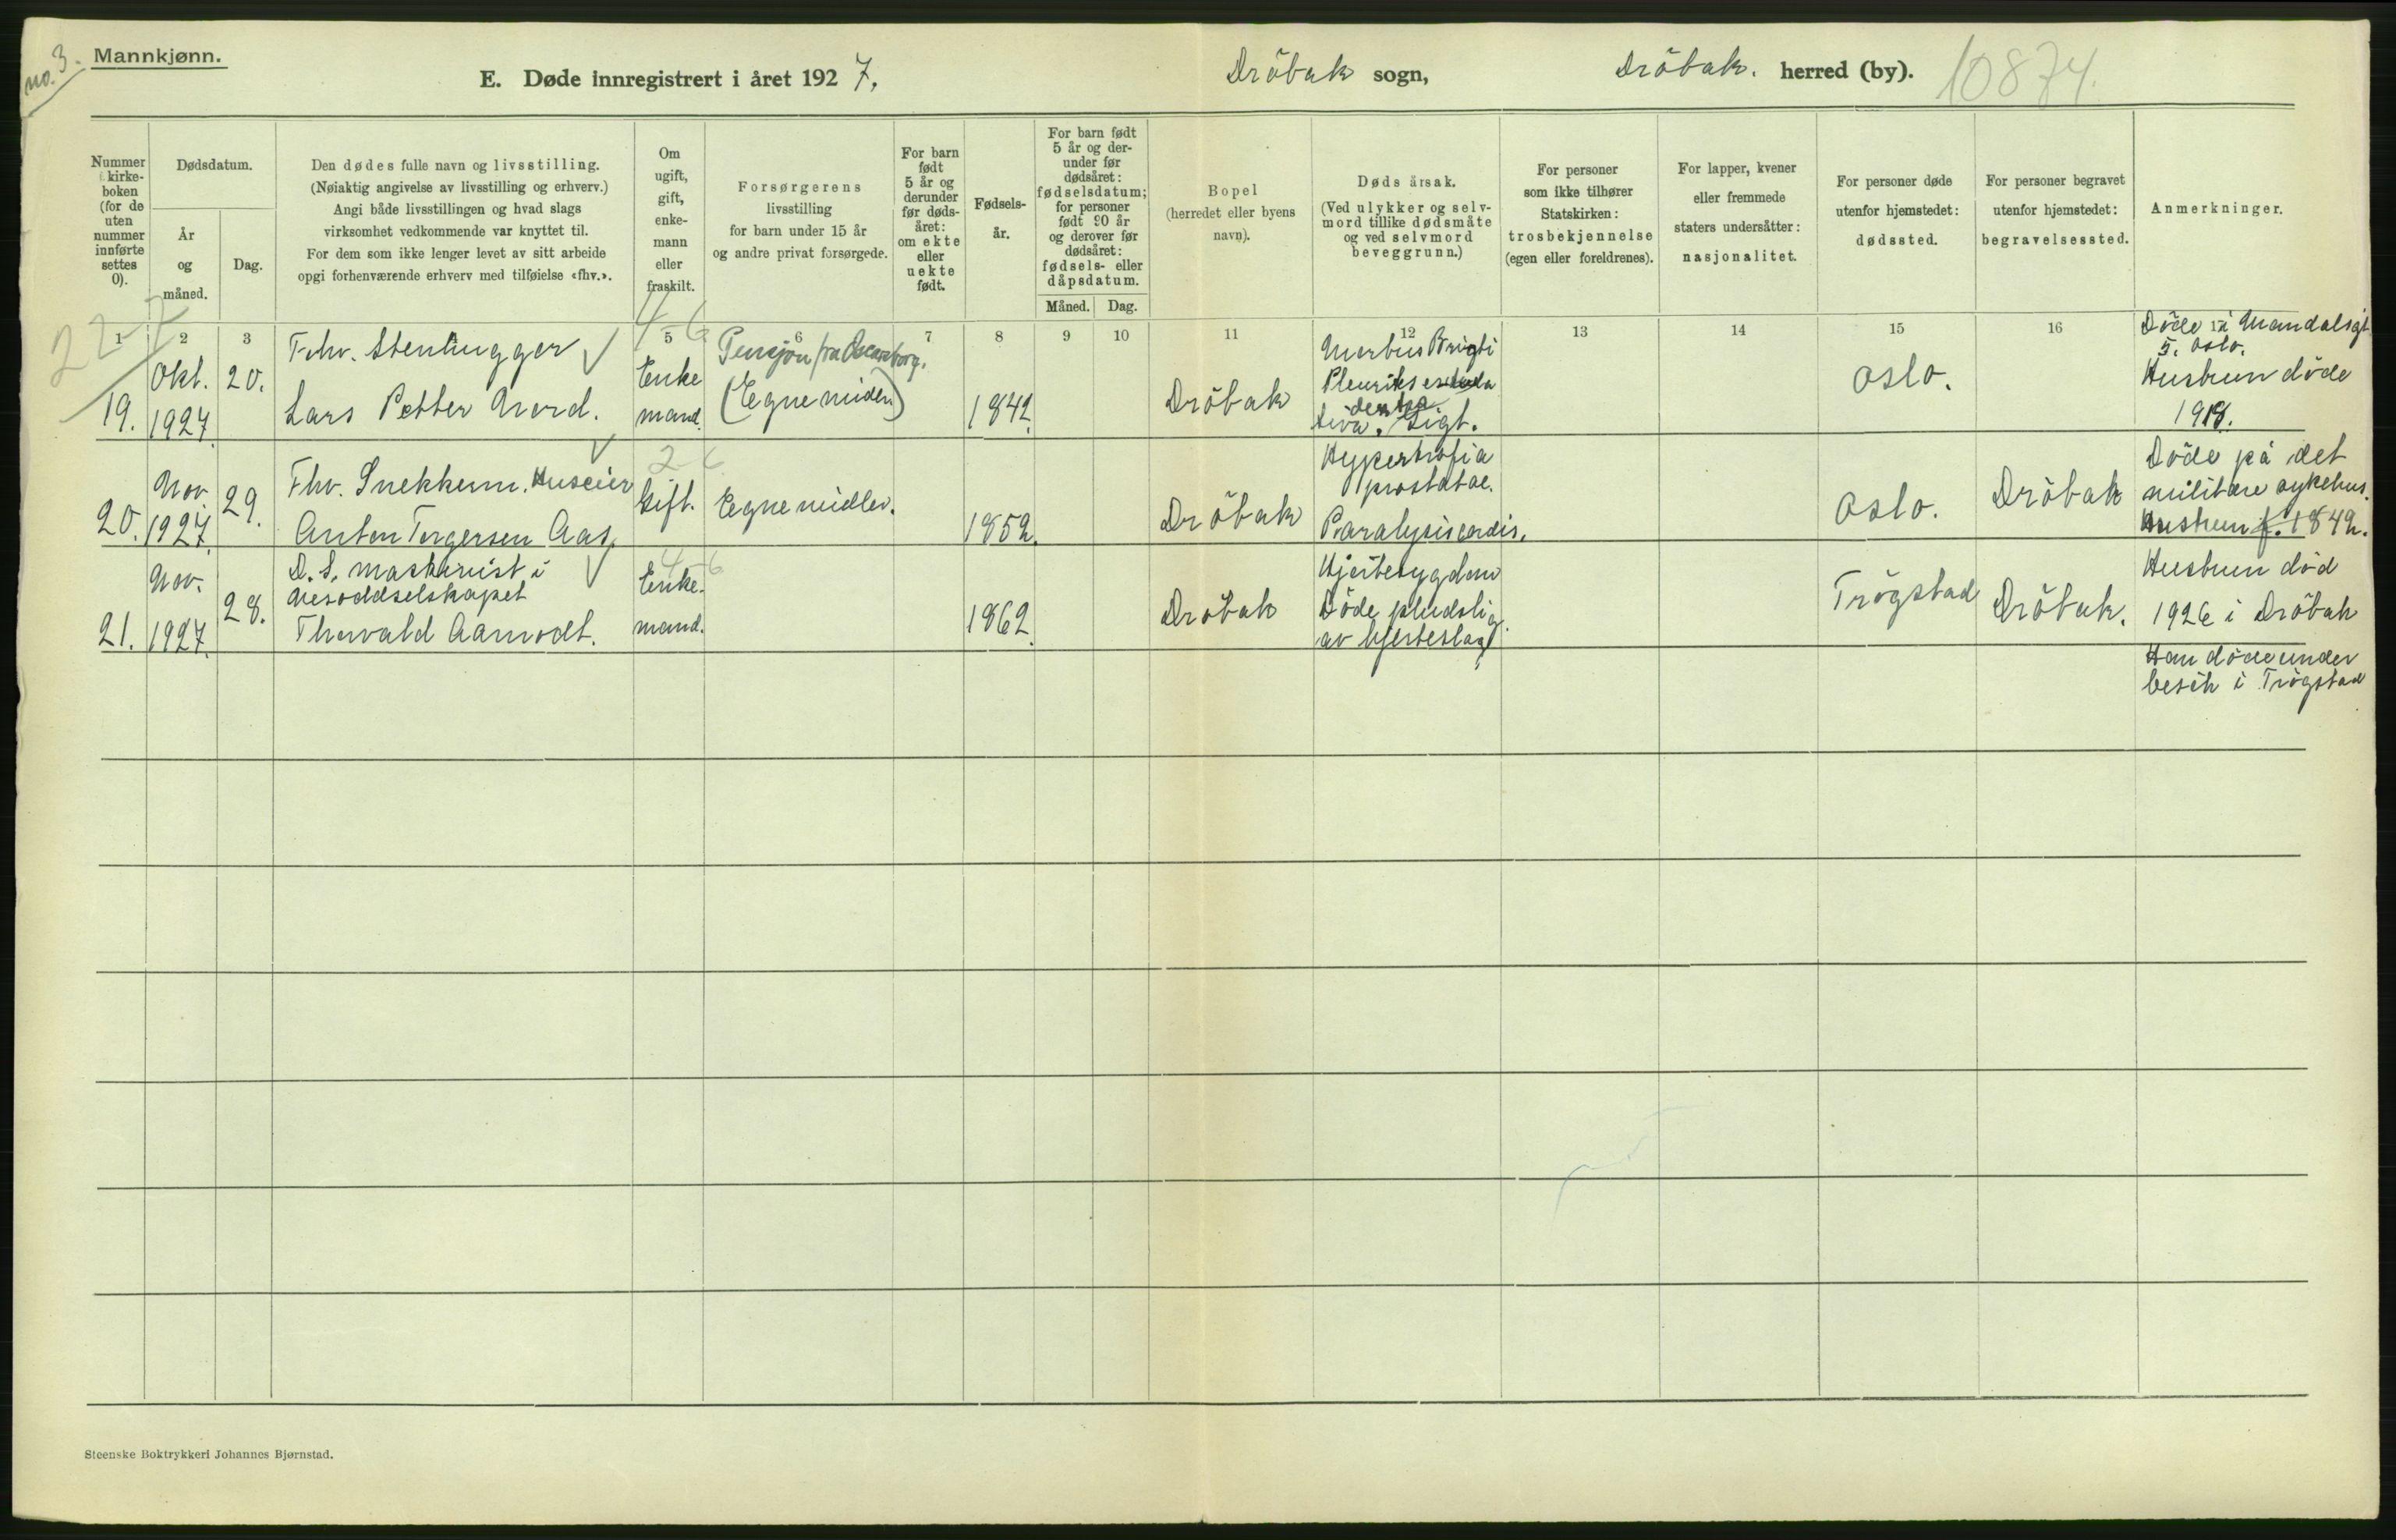 no. 3.
Mannkjønn.
E. Døde innregistrert i året 1927.
Dröbak sogn,
Dröbak. herred (by).
10874.
Nummer
i kirke-
boken
(for de
uten
nummer
innførte
settes
0).
Dødsdatum.
År
og
måned.
Dag.
Den dødes fulle navn og livsstilling.
(Nøiaktig angivelse av livsstilling og erhverv.)
Angi både livsstillingen og hvad slags
virksomhet vedkommende var knyttet til.
For dem som ikke lenger levet av sitt arbeide
opgi forhenværende erhverv med tilføielse «fhv.».
Om
ugift,
gift,
enke-
mann
eller
fraskilt.
Forsørgerens
livsstilling
for barn under 15 år
og andre privat forsørgede.
For barn
født
5 år og
derunder
før døds-
året:
om ekte
eller
uekte
født.
Fødsels-
år.
For barn født
5 år og der-
under før
dødsåret:
fødselsdatum;
for personer
født 90 år
og derover før
dødsåret:
fødsels- eller
dåpsdatum.
Måned.
Dag.
Bopel
(herredet eller byens
navn).
Dødsårsak.
(Ved ulykker og selv-
mord tillike dødsmåte
og ved selvmord
beveggrunn.)
For personer
som ikke tilhører
Statskirken:
trosbekjennelse
(egen eller foreldrenes).
For lapper, kvener
eller fremmede
staters undersåtter:
nasjonalitet.
For personer døde
utenfor hjemstedet:
dødssted.
For personer begravet
utenfor hjemstedet:
begravelsessted.
Anmerkninger.
1 2 3 5 6 7 8 9 10 11 12 13 14 15 16 17
22-7
4-6
19.
Okt.
1927.
20.
Fhv. Stenhugger
Lars Petter Nord.
Enke
mand.
Pensjon fra Oscarsborg.
(Egne midler)
1842.
Dröbak
Morbus Brigti
Pleurit
Gigt.
Oslo.
Döde i Mandalsgt
5. Oslo.
Hustrun döde
1918.
20.
Nov
1927.
29.
Fhv. Snekkerm. Huseier
Anton Torgersen Aas.
2-6
Gift.
Egne midler.
1852.
Dröbak
Hypertrofia
prostatae.
Paralysis cordis.
Oslo.
Dröbak
Döde på det
militære sykehus.
Hustrun f. 1842.
21.
Nov.
1927.
28.
D. S. maskinist i
Nesoddselskapet
Thorvald Aamodt.
4-6
Enke-
mand.
1862.
Dröbak
Hjertesygdom
Döde pludslig
av hjerteslag.
Trögstad
Dröbak.
Hustrun död
1926 i Dröbak
Han döde under
besök i Trögstad
Steenske Boktrykkeri Johannes Bjørnstad.